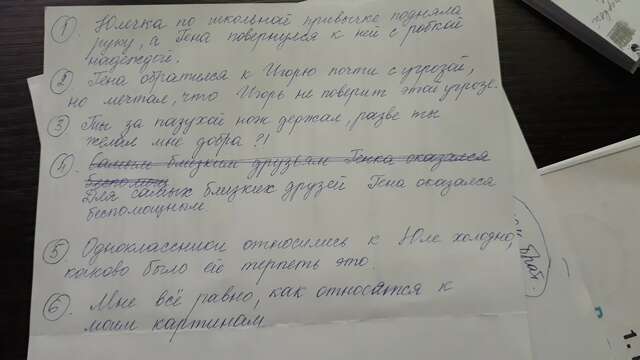 ① Юлечка по школьной привычке подняла
руку, а Гена повернулся к ней с робкой
надеждой.
② Гена обратился к Игорю почти с угрозой,
но мечтал, что Игорь не поверит этой угрозе.
③ Ты за пазухой нож держал, разве ты
желал мне добра?!
4. Самым близким друзьям Генка оказался
беспомощ
Для самых близких друзей Гена оказался
беспомощным.
⑤ Одноклассники относились к Юле холодно,
каково было ей терпеть это.
⑥ Мне всё равно, как относятся к
моим картинам
1.